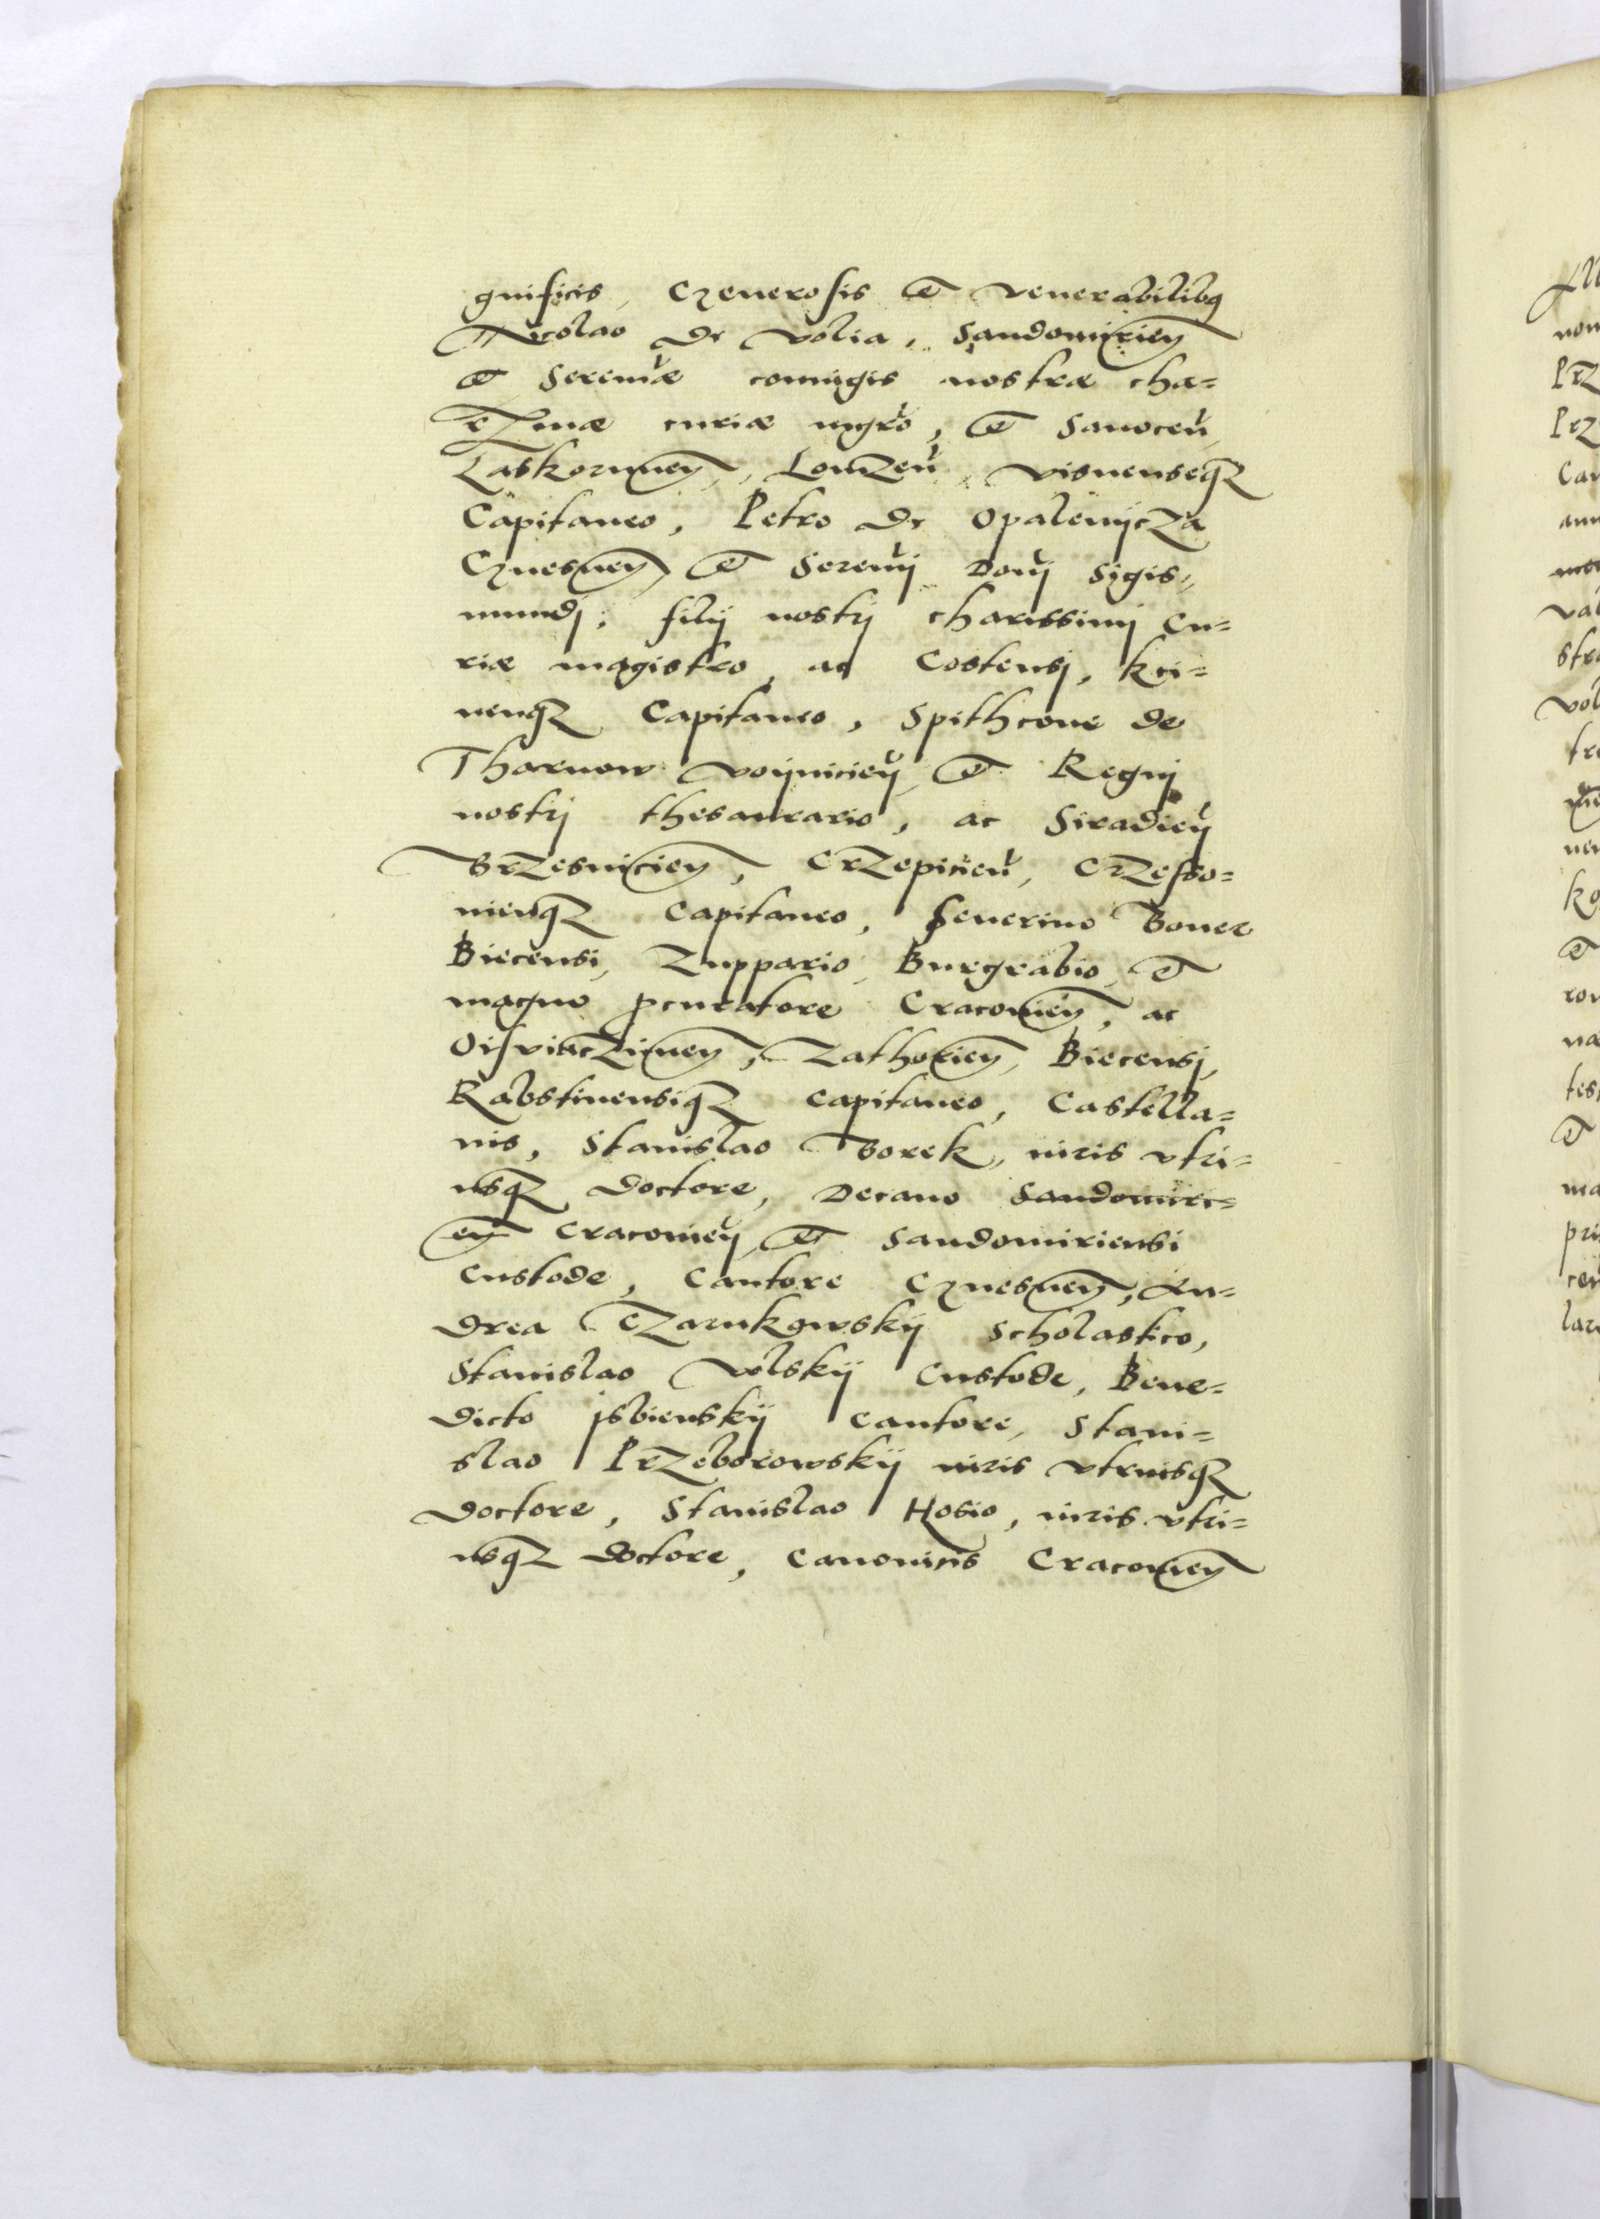 gnificis, Generosis et venerabilibq
Nicolao de Volia, Sandomirien
et Serenae coniugis nostrae cha=
rzmae curiae mgro, et Sanocen
Laskornnen, Lomzen, visnenseqz
Capitaneo, Petro de Opalenijcza
Gnesnen, et Serenij Donj Sigis,,
mundj, filij nostrj charissimj Cu=
riae magistro, ac Costensj, kci=
nenqz Capitaneo, Spithcone de
Tharnow voijnicien, et Regnj
nostrj thesaurario, ac Siradien
Brzesnicien, Crzepicien, Crzesso=
nienqz Capitaneo, Seuerino Boner
Biecensi, Zuppario, Burgrabio, et
magno pcuratore Cracouien, ac
Oisviaczimen, Zathorien, Biecensj,
Rabstinensiqz capitaneo, Castella=
nis, Stanislao Borek, iuris vtri=
usqz doctore, Decano Sandomiri=
en Cracouien, et Sandomiriensi
Custode, Cantore Gnesnen, An=
drea Czarnkowskij Scholastico,
Stanislao Volskij Custode, Bene=
dicto jsbienskij Cantore, Stani=
slao Przeborowskij iuris vtriusqz
doctore, Stanislao Hosio, iuris vtri=
usqz doctore, Canonicis Cracouien